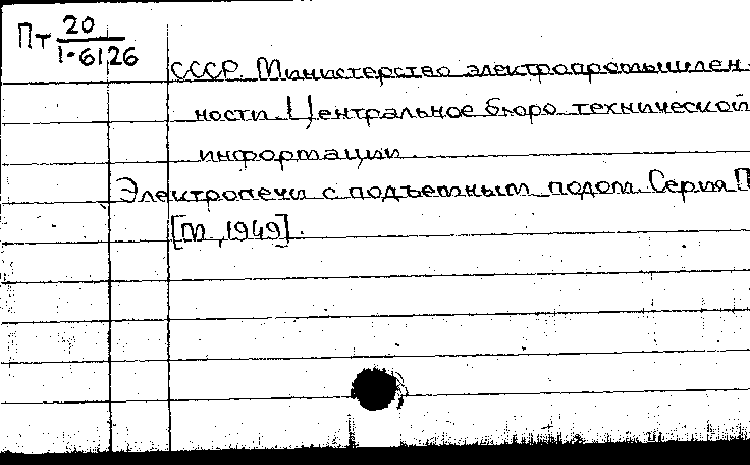 Пт 20
1-6126
СССР. Министерство электропромышлен-
ности. Центральное бюро технической
информации.
Электропечи с подъемным подом. Серия П
[М, 1949].